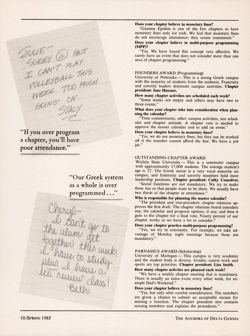 JUNE-
SORRY BUT
I CAN'T PLAY
VOLLEYBALL THIS
WEEK TOO MUCH
GOING ON.
"If you over program
a chapter, you'll have
poor attendance."
"Our Greek system
as a whole is over
programmed . . ."
Cheryl-
I can't go to
the alum
together this week
I have to study
plus I have a
music class!
Beth
10/SPRING 1985
Does your chapter believe in monetary fines?
"Gamma Epsilon is one of the few chapters to have
monetary fines only for rush. We feel that monetary fines
do not encourage attendance; they create resentment."
Does your chapter believe in multi-purpose programming
(MPP)?
"Yes. We have found this concept very effective. We
rarely have an event that does not consider more than one
area of chapter programming."
FOUNDERS AWARD (Programming)
University of Nebraska— This is a strong Greek campus
with the majority of students from the midwest. Fraternity
and sorority leaders dominate campus activities. Chapter
president: Pam Hermes.
How many chapter activities are scheduled each week?
"Some weeks are empty and others may have two to
three events."
What does your chapter take into consideration when planning
the calendar?
"Time commitments, other campus activities, test schedules
and chapter attitude. A chapter vote is needed to
approve the master calendar and to add an event."
Does your chapter believe in monetary fines?
"Yes, we do use monetary fines, but they can be worked
off if the member cannot afford the fine. We have a job
list."
OUTSTANDING CHAPTER AWARD
Wichita State University — This is a commuter campus
with approximately 17,000 students. The average student's
age is 27. The Greek sector is a very vocal minority on
campus, and fraternity and sorority members hold most
leadership positions. Chapter president: Cathy Crosslin.
"Social functions are not mandatory. We try to make
them fun so that people want to be there. We usually have
two thirds of the chapter in attendance."
Who is responsible for planning the master calendar?
"The president and vice-president: chapter relations approve
the first draft. The chapter relations board considers
the calendar and proposes options, if any, and then it
goes to the chapter for a final vote. Ninety percent of our
chapter works so we have a lot to consider."
Does your chapter practice multi-purpose programming?
"Yes, we try to constantly. For example, we take advantage
of Monday night meetings because those are
mandatory."
PARNASSUS AWARD (Scholarship)
University of Michigan — This campus is very academic
and the student body is diverse. Grades, course work and
sports are top priorities. Chapter president: Lisa Carmel.
How many chapter activities are planned each week?
"We have a weekly chapter meeting that is mandatory.
There is usually an extra event every other week, for example
Dad's Weekend."
Does your chapter believe in monetary fines?
"Yes, but only after careful consideration. The members
are given a chance to submit an acceptable excuse for
missing a function. The chapter president also contacts
missing members and explains the possible fines."
THE ANCHORA OF DELTA GAMMA